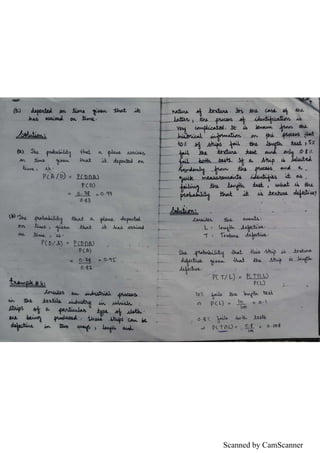 (b) departed on time given that it
has arrived on time.
Solution:
(a) The probability that a plane arrives
on time given that it departed on
time, is:
P(A/D) = P(D∩A)
P(D)
= 0.78 = 0.94
0.83
(b) The probability that a plane departed
on time, given that it has arrived
on time, is
P(D/A) = P(D∩A)
P(A)
= 0.78 = 0.95
0.82
Example # 6:
Consider an industrial process
in the textile industry in which
strips of a particular type of cloth
are being produced. These strips can be
defective in two ways, length and
nature of texture. For the case of the
latter, the process of identification is
very complicated. It is known from the
historical information on the process that
10% of strips fail the length test, 5%
fail the texture test and only 0.8%
fail both tests. If a strip is selected
randomly from the process and a
quick measurement identifies it as
failing the length test, what is the
probability that it is texture defective?
Solution:
Consider the events:
L : length defective
T : Texture defective.
The probability that this strip is texture
defective given that the strip is length
defective.
P(T/L) = P(T∩L)
P(L)
10% fails the length test
P(L) = 10 = 0.1
100
0.8% fails both tests
P(T∩L) = 0.8 = 0.008
100
Scanned by CamScanner